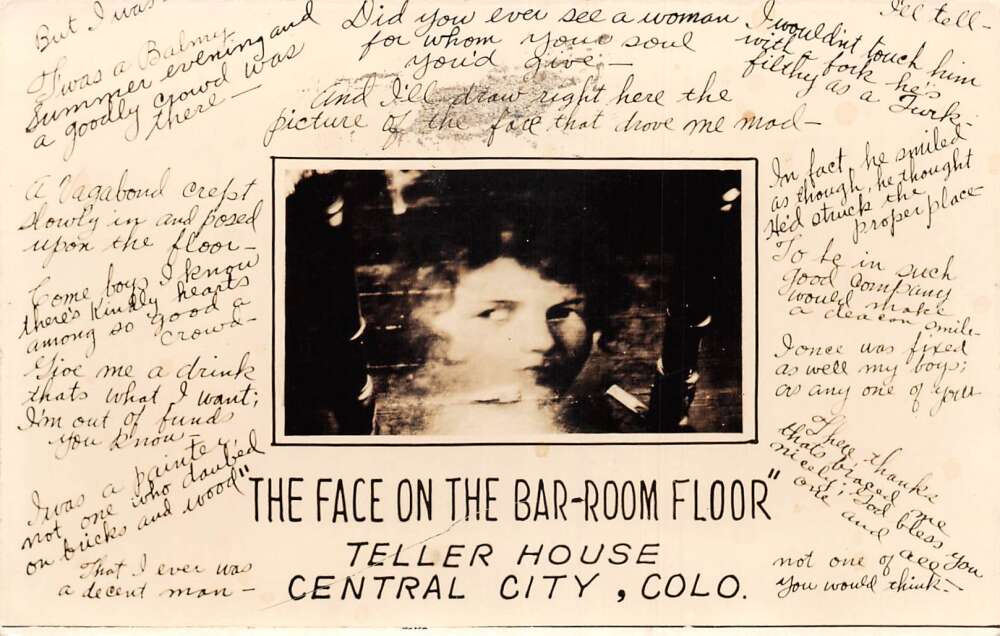 But I was
'Twas a Balmy
Summer evening and
a goodly crowd was
there—
A Vagabond crept
slowly in and posed
upon the floor—
Come boys I know
there's kindly hearts
among so good a
crowd—
Give me a drink
thats what I want;
I'm out of funds
you know—
I was a painter,
not one who daubed
on bricks and wood
That I ever was
a decent man—
Did you ever see a woman
for whom your soul
you'd give;—
And I'll draw right here the
picture of the face that drove me mad—
"THE FACE ON THE BAR-ROOM FLOOR"
TELLER HOUSE
CENTRAL CITY, COLO.
I'll tell—
I wouldn't touch him
with a fork he's
filthy as a Turk—
In fact, he smiled
as though, he thought
He'd struck the
proper place
To be in such
good company
would make
a deacon smile—
I once was fixed
as well my boys;
as any one of you
There thanks
thats braced me
nicely; God bless you
one and all
not one of
you would think—